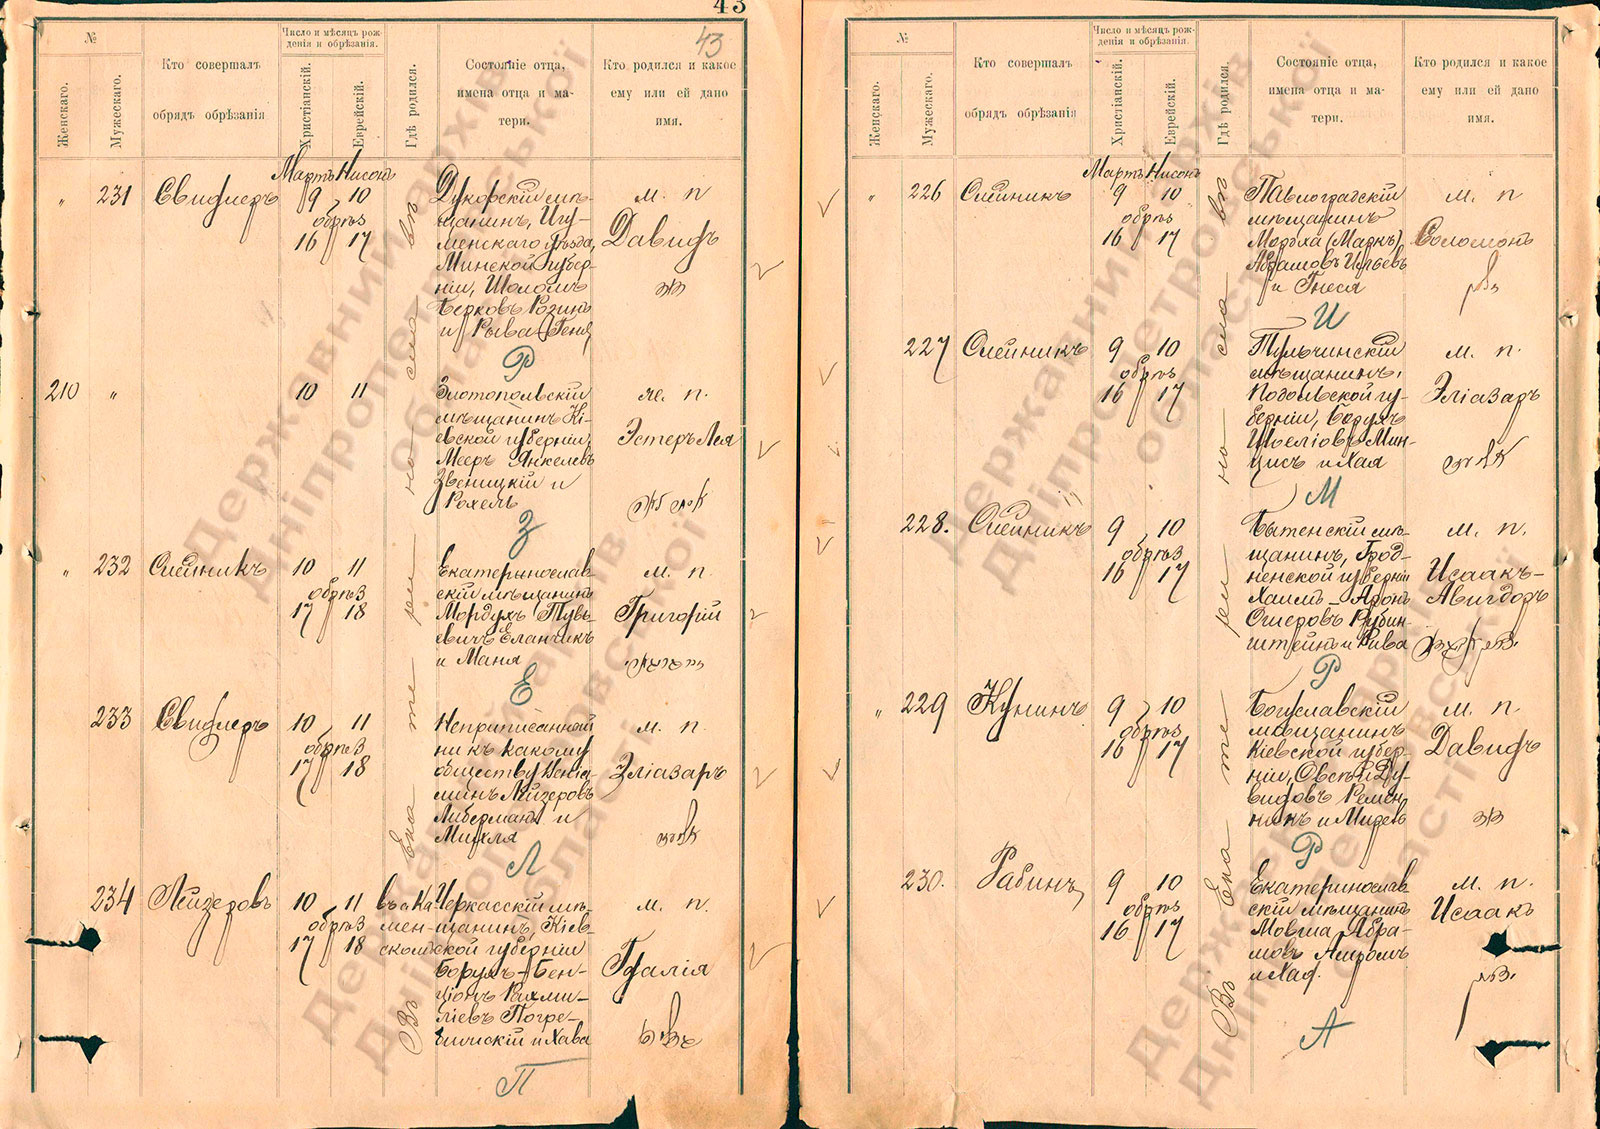 43
43
№
Женскаго.
Мужескаго.
Кто совершалъ
обрядъ обрѣзанія
Число и мѣсяцъ рож-
денія и обрѣзанія.
Христіанскій.
Еврейскій.
Гдѣ родился.
Состояніе отца,
имена отца и ма-
тери.
Кто родился и какое
ему или ей дано
имя.
Мартъ Нисонъ
" 231 Свидлеръ 9 10
обрѣз
16 17
Дукорскій мѣ-
щанинъ, Игу-
менскаго уѣзда,
Минской губер-
ніи, Шоломъ
Берковъ Розинъ
и Рыва Геня
Р
м. п
Давидъ
210 " 10 11
Златопольскій
мѣщанинъ Кі-
евской губерніи,
Мееръ Янкелевъ
Звеницкій и
Рохель
З
же. п.
Эстеръ Лея
" 232 Олейникъ 10 11
обрѣз
17 18
Екатеринослав-
скій мѣщанинъ
Мордухъ Тувь-
евичъ Еланчикъ
и Маня
Е
м. п.
Григорій
233 Свидлеръ 10 11
обрѣз
17 18
Неприписанной
ни къ какому
обществу Веніа-
минъ Лейзеровъ
Либерманъ и
Михля
Л
м. п.
Эліазаръ
234 Лейзеровъ 10 11
обрѣз
17 18
въ с. Ка-
мен-
скомъ
Черкасскій мѣ-
щанинъ, Кіев-
ской губерніи
Борухъ-Бен-
ціонъ Рахми-
ліевъ Погре-
бинскій и Хава
П
м. п.
Гдалія
Въ Екатеринославѣ
№
Женскаго.
Мужескаго.
Кто совершалъ
обрядъ обрѣзанія
Число и мѣсяцъ рож-
денія и обрѣзанія.
Христіанскій.
Еврейскій.
Гдѣ родился.
Состояніе отца,
имена отца и ма-
тери.
Кто родился и какое
ему или ей дано
имя.
Мартъ Нисонъ
" 226 Олейникъ 9 10
обрѣз
16 17
Павлоградскій
мѣщанинъ
Мордха (Маркъ)
Абрамовъ Ильевъ
и Гнеся
И
м. п
Соломонъ
227 Олейникъ 9 10
обрѣз
16 17
Тульчинскій
мѣщанинъ,
Подольской гу-
берніи, Борухъ
Шоеліовъ Мин-
цисъ и Хая
М
м. п.
Эліазаръ
228. Олейникъ 9 10
обрѣз
16 17
Бытенскій мѣ-
щанинъ, Грод-
ненской губерніи
Хаимъ-Аронъ
Ошеровъ Рубин-
штейнъ и Рива
Р
м. п.
Исаакъ-
Авигдоръ
" 229 Кунинъ 9 10
обрѣз
16 17
Богуславскій
мѣщанинъ
Кіевской губер-
ніи, Овсей Ду-
видовъ Ремен-
никъ и Мирель
Р
м. п.
Давидъ
230. Рабинъ 9 10
обрѣз
16 17
Екатеринослав
скій мѣщанинъ
Мовша Абра-
мовъ
и Хая.
А
м. п.
Исаакъ
Въ Екатеринославѣ
Державний архів
Дніпропетровської
області